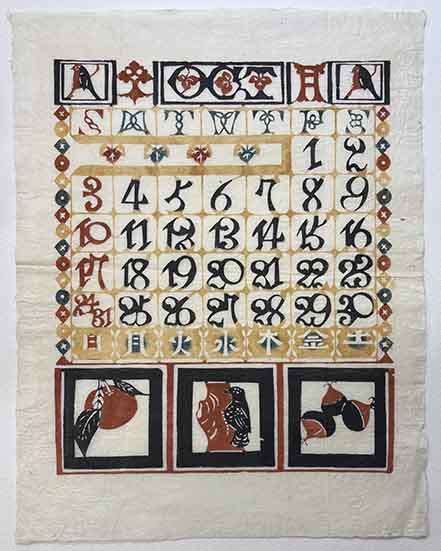 十 OCT 月
S M T W T F S
1 2
3 4 5 6 7 8 9
10 11 12 13 14 15 16
17 18 19 20 21 22 23
24/31 25 26 27 28 29 30
日 月 火 水 木 金 土